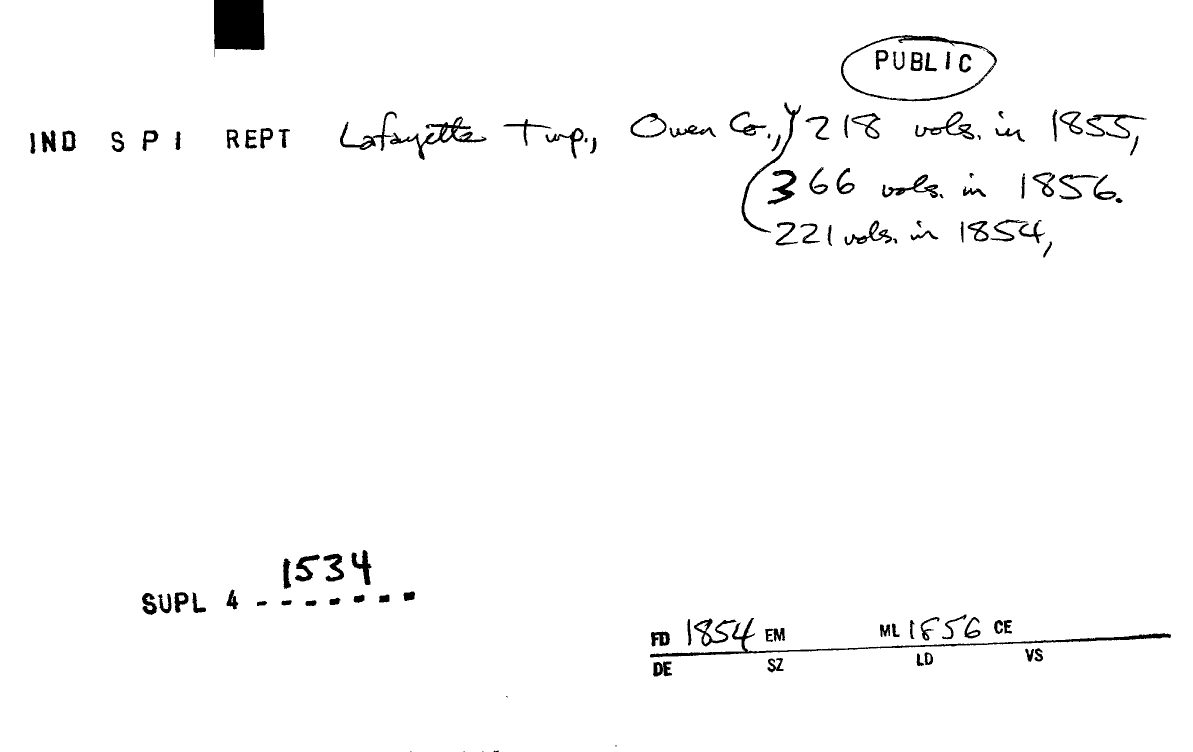 PUBLIC
IND S P I REPT Lafayette Twp., Owen Co., 218 vols. in 1855,
366 vols. in 1856.
221 vols. in 1854,
1534
SUPL 4 - - - - - - -
FD 1854 EM ML 1856 CE
DE SZ LD VS